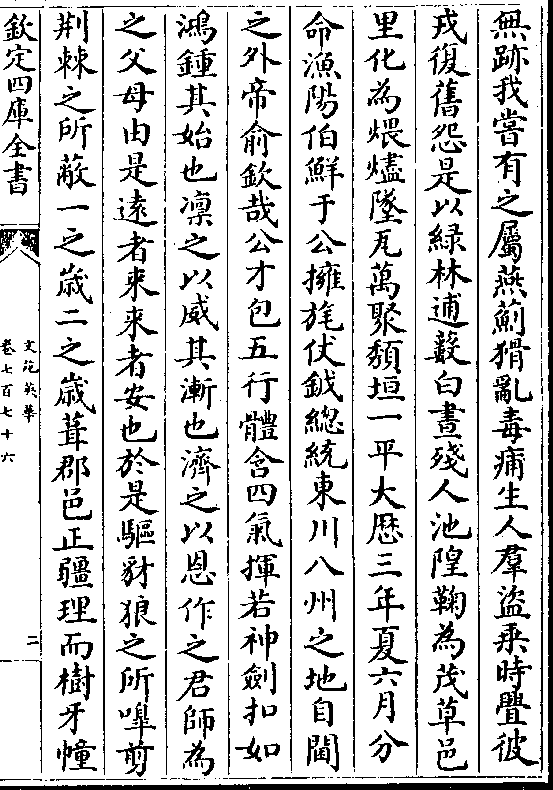 無跡我嘗有之屬燕薊猾亂毒痡生人羣盜乘時釁彼
戎復舊怨是以緑林逋藪白晝殘人池隍鞠為茂草邑
里化為煨燼墜瓦萬聚頽垣一平大厯三年夏六月分
命漁陽伯鮮于公擁旄伏鉞總統東川八州之地自閫
之外帝俞欽哉公才包五行體含四氣揮若神劍扣如
鴻鍾其始也凛之以威其漸也濟之以恩作之君師為
之父母由是逺者来来者安也於是驅豺狼之所嘷剪
荆棘之所蔽一之嵗二之嵗葺郡邑正疆理而樹牙幢
欽定四庫全書
文苑英華
卷七百七十六
二